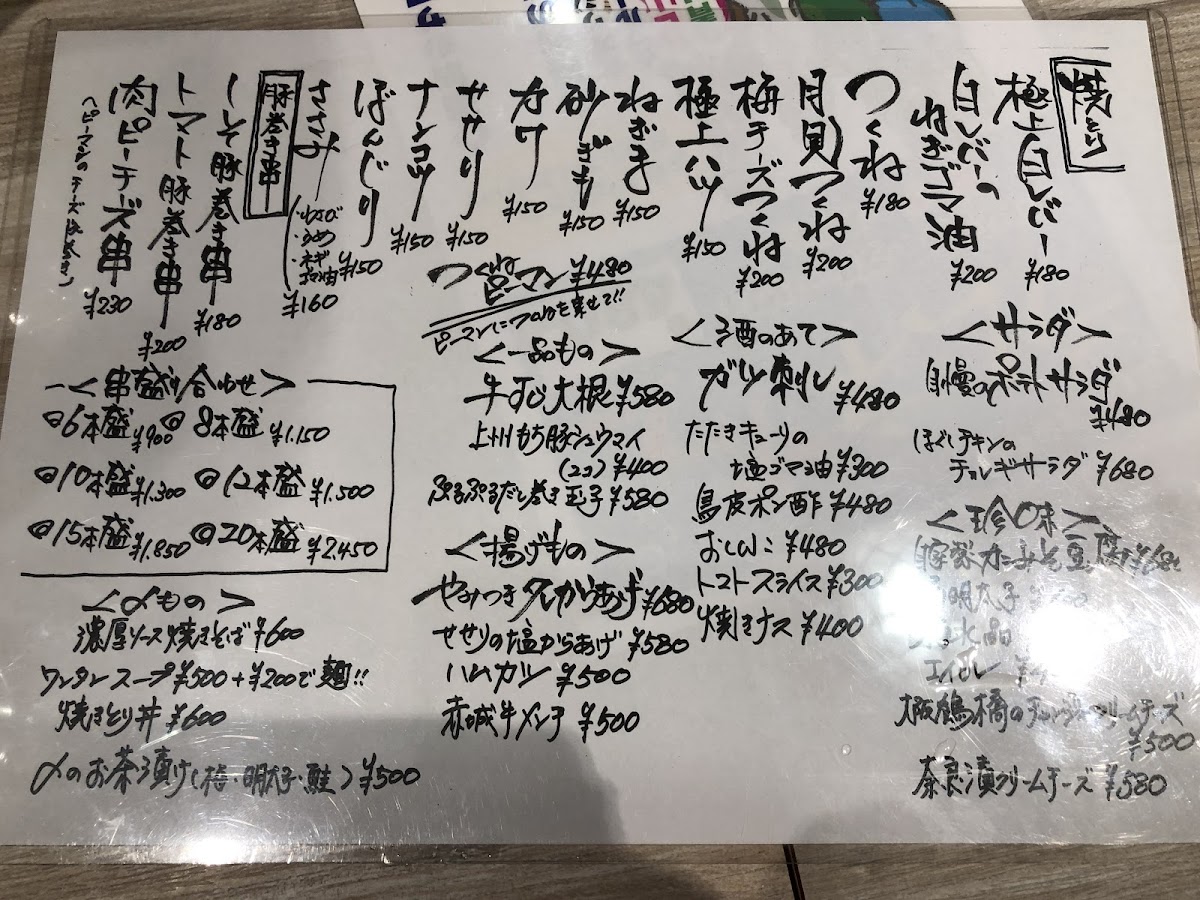 焼とり
極上白レバー ¥180
白レバーの
ねぎゴマ油 ¥200
つくね ¥180
月見つくね ¥200
梅チーズつくね ¥200
極上ハツ ¥150
ねぎま ¥150
砂ぎも ¥150
カワ ¥150
せせり ¥150
ナンコツ ¥150
ぼんじり ¥150
ささみ
・わさび
・うめ
・ネギ
ゴマ油
¥160
豚巻き串
しそ豚巻き串 ¥180
トマト豚巻き串 ¥200
肉ピーチーズ串 ¥230
(ピーマンのチーズ
つくねピーマン ¥480
ピーマンにつくねを乗せて!!
<サラダ>
自慢のポテトサラダ
¥480
ほぐしチキンの
チョレギサラダ ¥680
<珍味>
自家製カニみそ豆腐
明太子
水晶
エイヒレ
大阪鶴橋のチャンジャクリームチーズ
¥500
奈良漬クリームチーズ ¥580
<酒のあて>
ガツ刺し ¥480
たたきキューリの
塩ゴマ油 ¥300
鳥皮ポン酢 ¥480
おしんこ ¥480
トマトスライス ¥300
焼きナス ¥400
<一品もの>
牛すじ大根 ¥580
上州もち豚シュウマイ
(2コ) ¥400
ぷるぷるだし巻き玉子 ¥580
<揚げもの>
やみつきタレからあげ ¥680
せせりの塩からあげ ¥580
ハムカツ ¥500
赤城牛メンチ ¥500
<串盛り合わせ>
◎6本盛 ¥900 ◎8本盛 ¥1.150
◎10本盛 ¥1.300 ◎12本盛 ¥1.500
◎15本盛 ¥1.850 ◎20本盛 ¥2.450
<〆もの>
濃厚ソース焼きそば ¥600
ワンタンスープ ¥500 +¥200で麺!!
焼きとり丼 ¥600
〆のお茶漬け(梅・明太子・鮭) ¥500